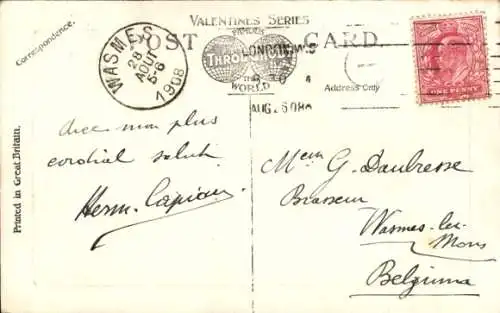 VALENTINES SERIES
POST CARD.
FAMOUS
THROUGHOUT
THE
WORLD
Correspondence.
Address Only
WASMES
28
AOUT
5-6
1908
LONDON.W.S
AUG 26 08
ONE PENNY
Printed in Great Britain.
Avec mon plus
cordial salut
Herm.
G. Daubresse
Brasseur
Wasmes-lez-
Mons
Belgium